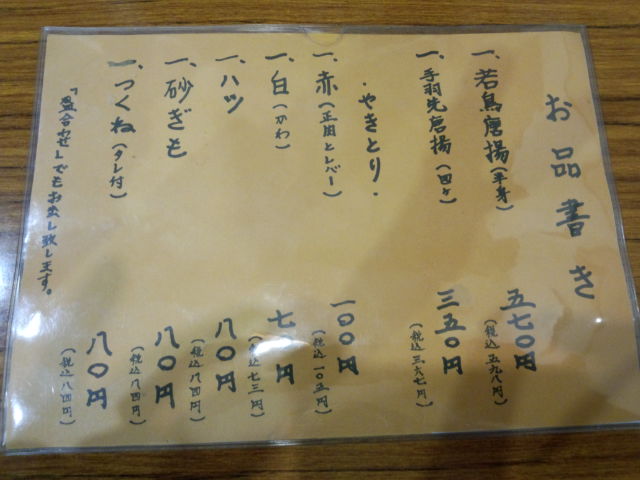 お品書き
一、若鳥唐揚(半身) 五七〇円
(税込 五九八円)
一、手羽先唐揚(四ヶ) 三五〇円
(税込 三六七円)
・やきとり・
一、赤(正肉とレバー) 一〇〇円
(税込 一〇五円)
一、白(かわ) 七〇円
(税込 七三円)
一、ハツ 八〇円
(税込 八四円)
一、砂ぎも 八〇円
(税込 八四円)
一、つくね(タレ付) 八〇円
(税込 八四円)
「盛合わせ」でもお出し致します。